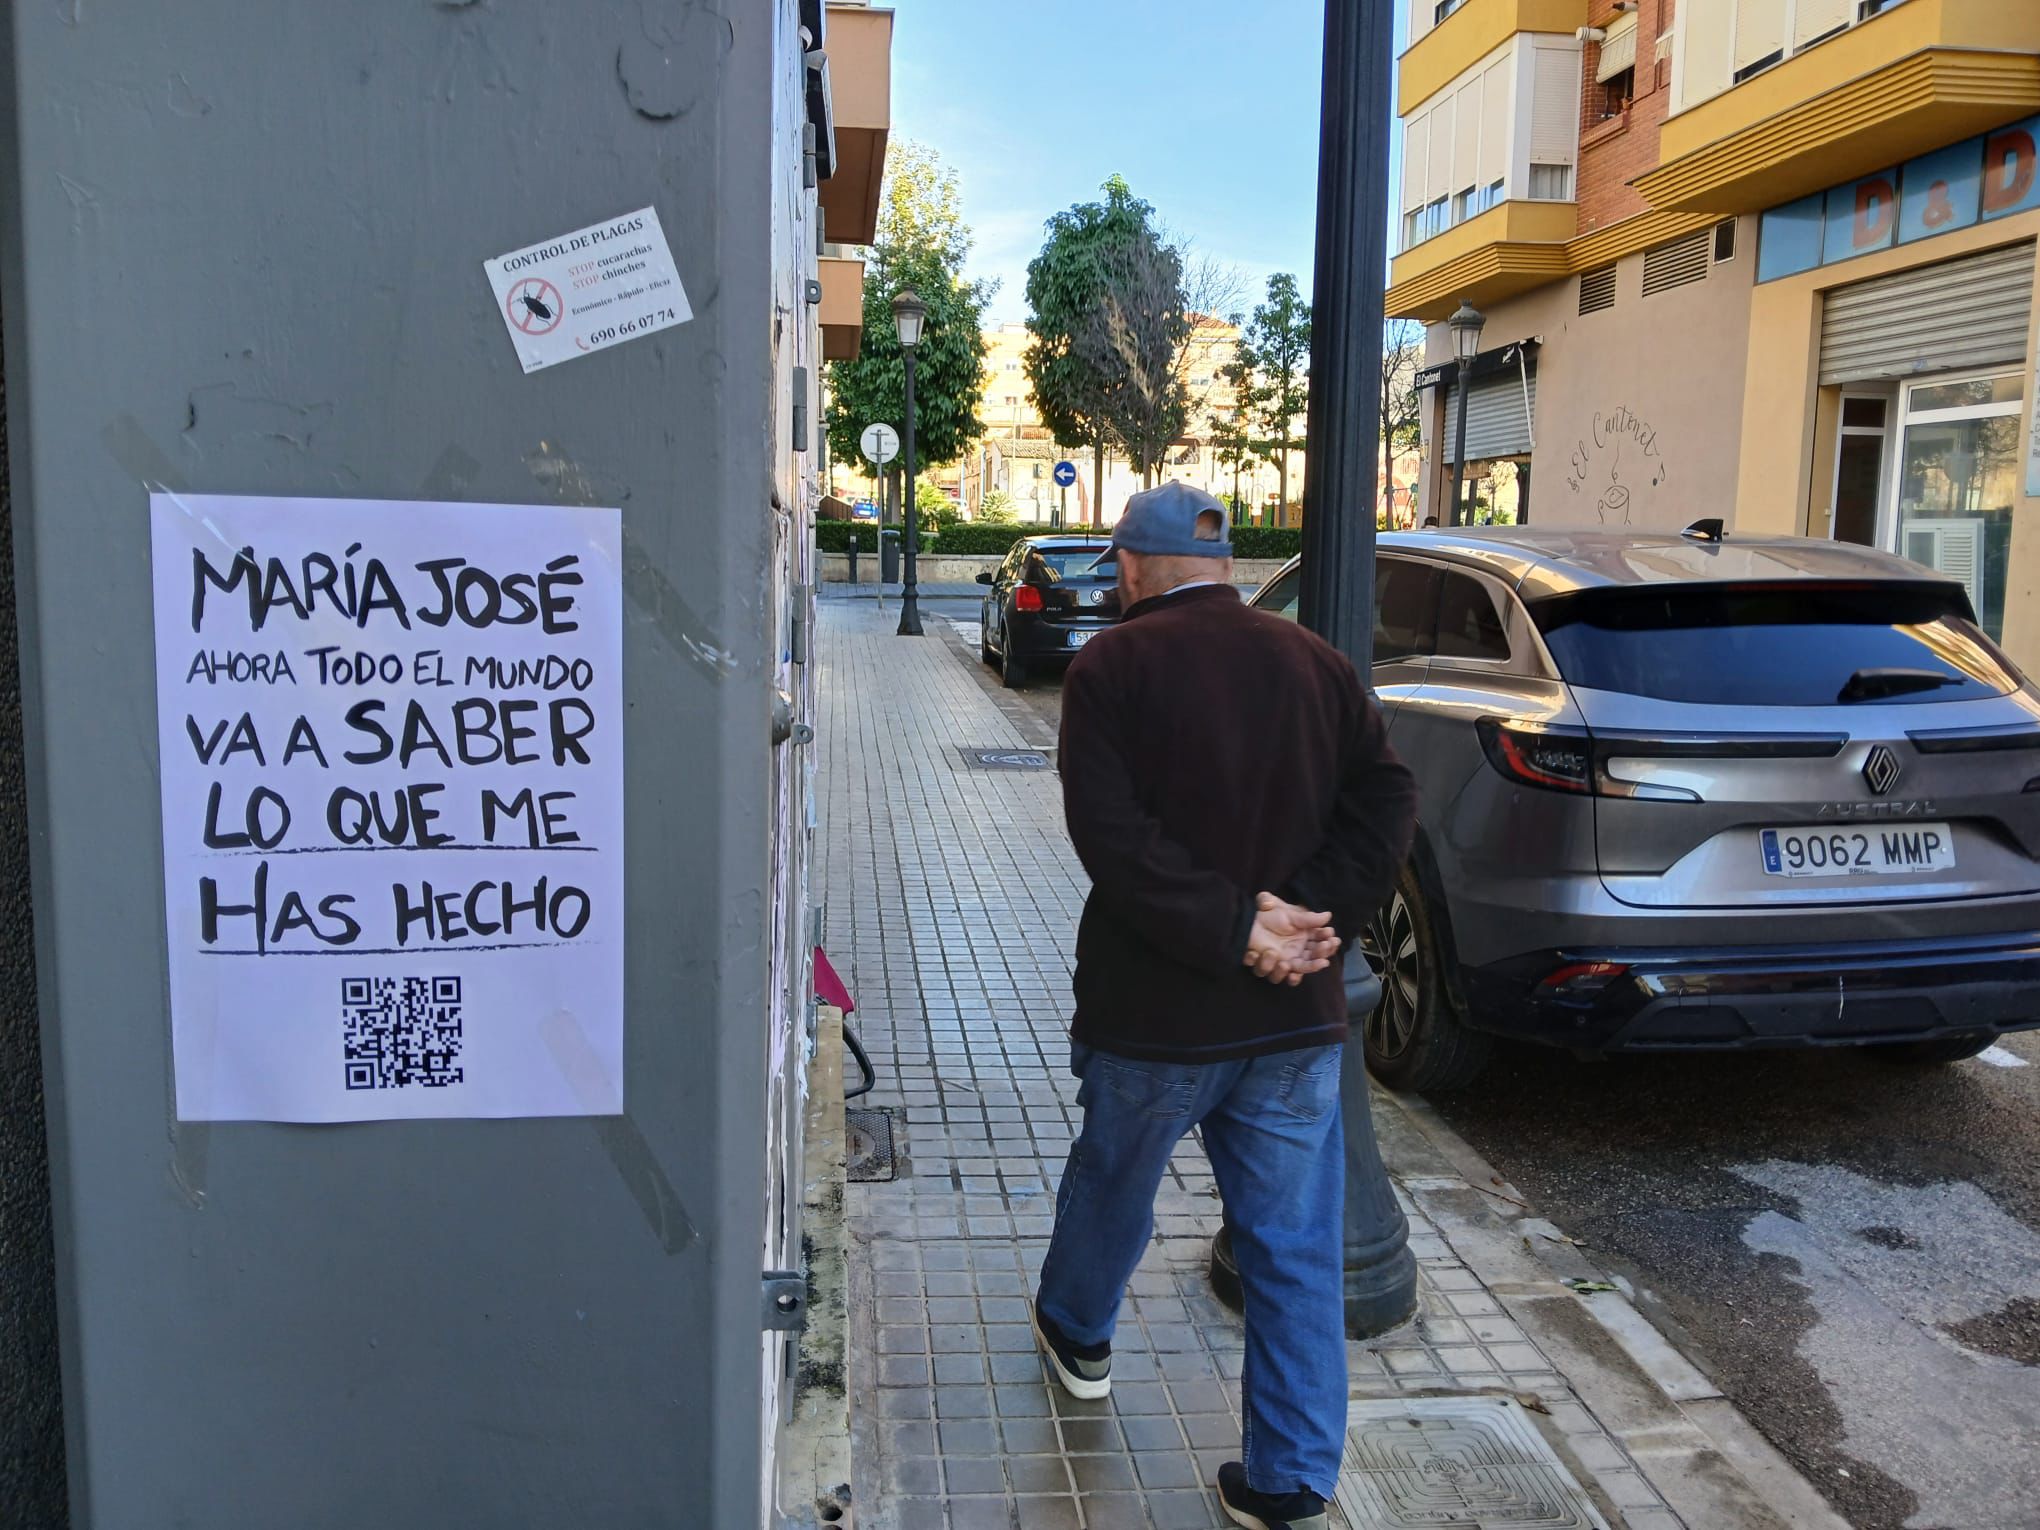 CONTROL DE PLAGAS
STOP cucarachas
STOP chinches
Económico - Rápido - Eficaz
690 66 07 74
MARÍA JOSÉ
AHORA TODO EL MUNDO
VA A SABER
LO QUE ME
HAS HECHO
POLO
El Cantonet
El Cantonet
D & D
AUSTRAL
E
9062 MMP